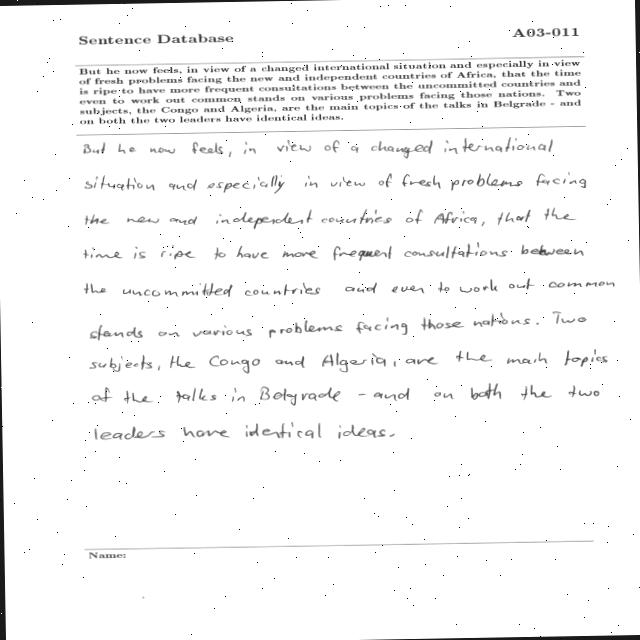 Sentence Database
A03-011
But he now feels, in view of a changed international situation and especially in view
of fresh problems facing the new and independent countries of Africa, that the time
is ripe to have more frequent consultations between the uncommitted countries and
even to work out common stands on various problems facing those nations. Two
subjects, the Congo and Algeria, are the main topics of the talks in Belgrade - and
on both the two leaders have identical ideas.
But he now feels, in view of a changed international
situation and especially in view of fresh problems facing
the new and independent countries of Africa, that the
time is ripe to have more frequent consultations between
the uncommitted countries and even to work out common
stands on various problems facing those nations. Two
subjects, the Congo and Algeria, are the main topics
of the talks in Belgrade - and on both the two
leaders have identical ideas.
Name: